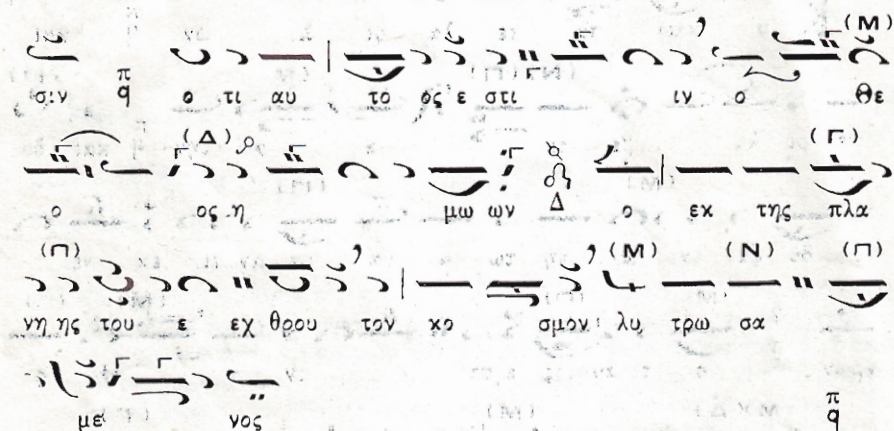 (Μ)
σιν π q ο τι αυ το ος ε στι ιν ο Θε
(Δ) (Γ)
ο ος η μω ων Δ ο εκ της πλα
(Π) (Μ) (Ν) (Π)
νη ης του ε εχ θρου τον κο σμον λυ τρω σα
με νος π q